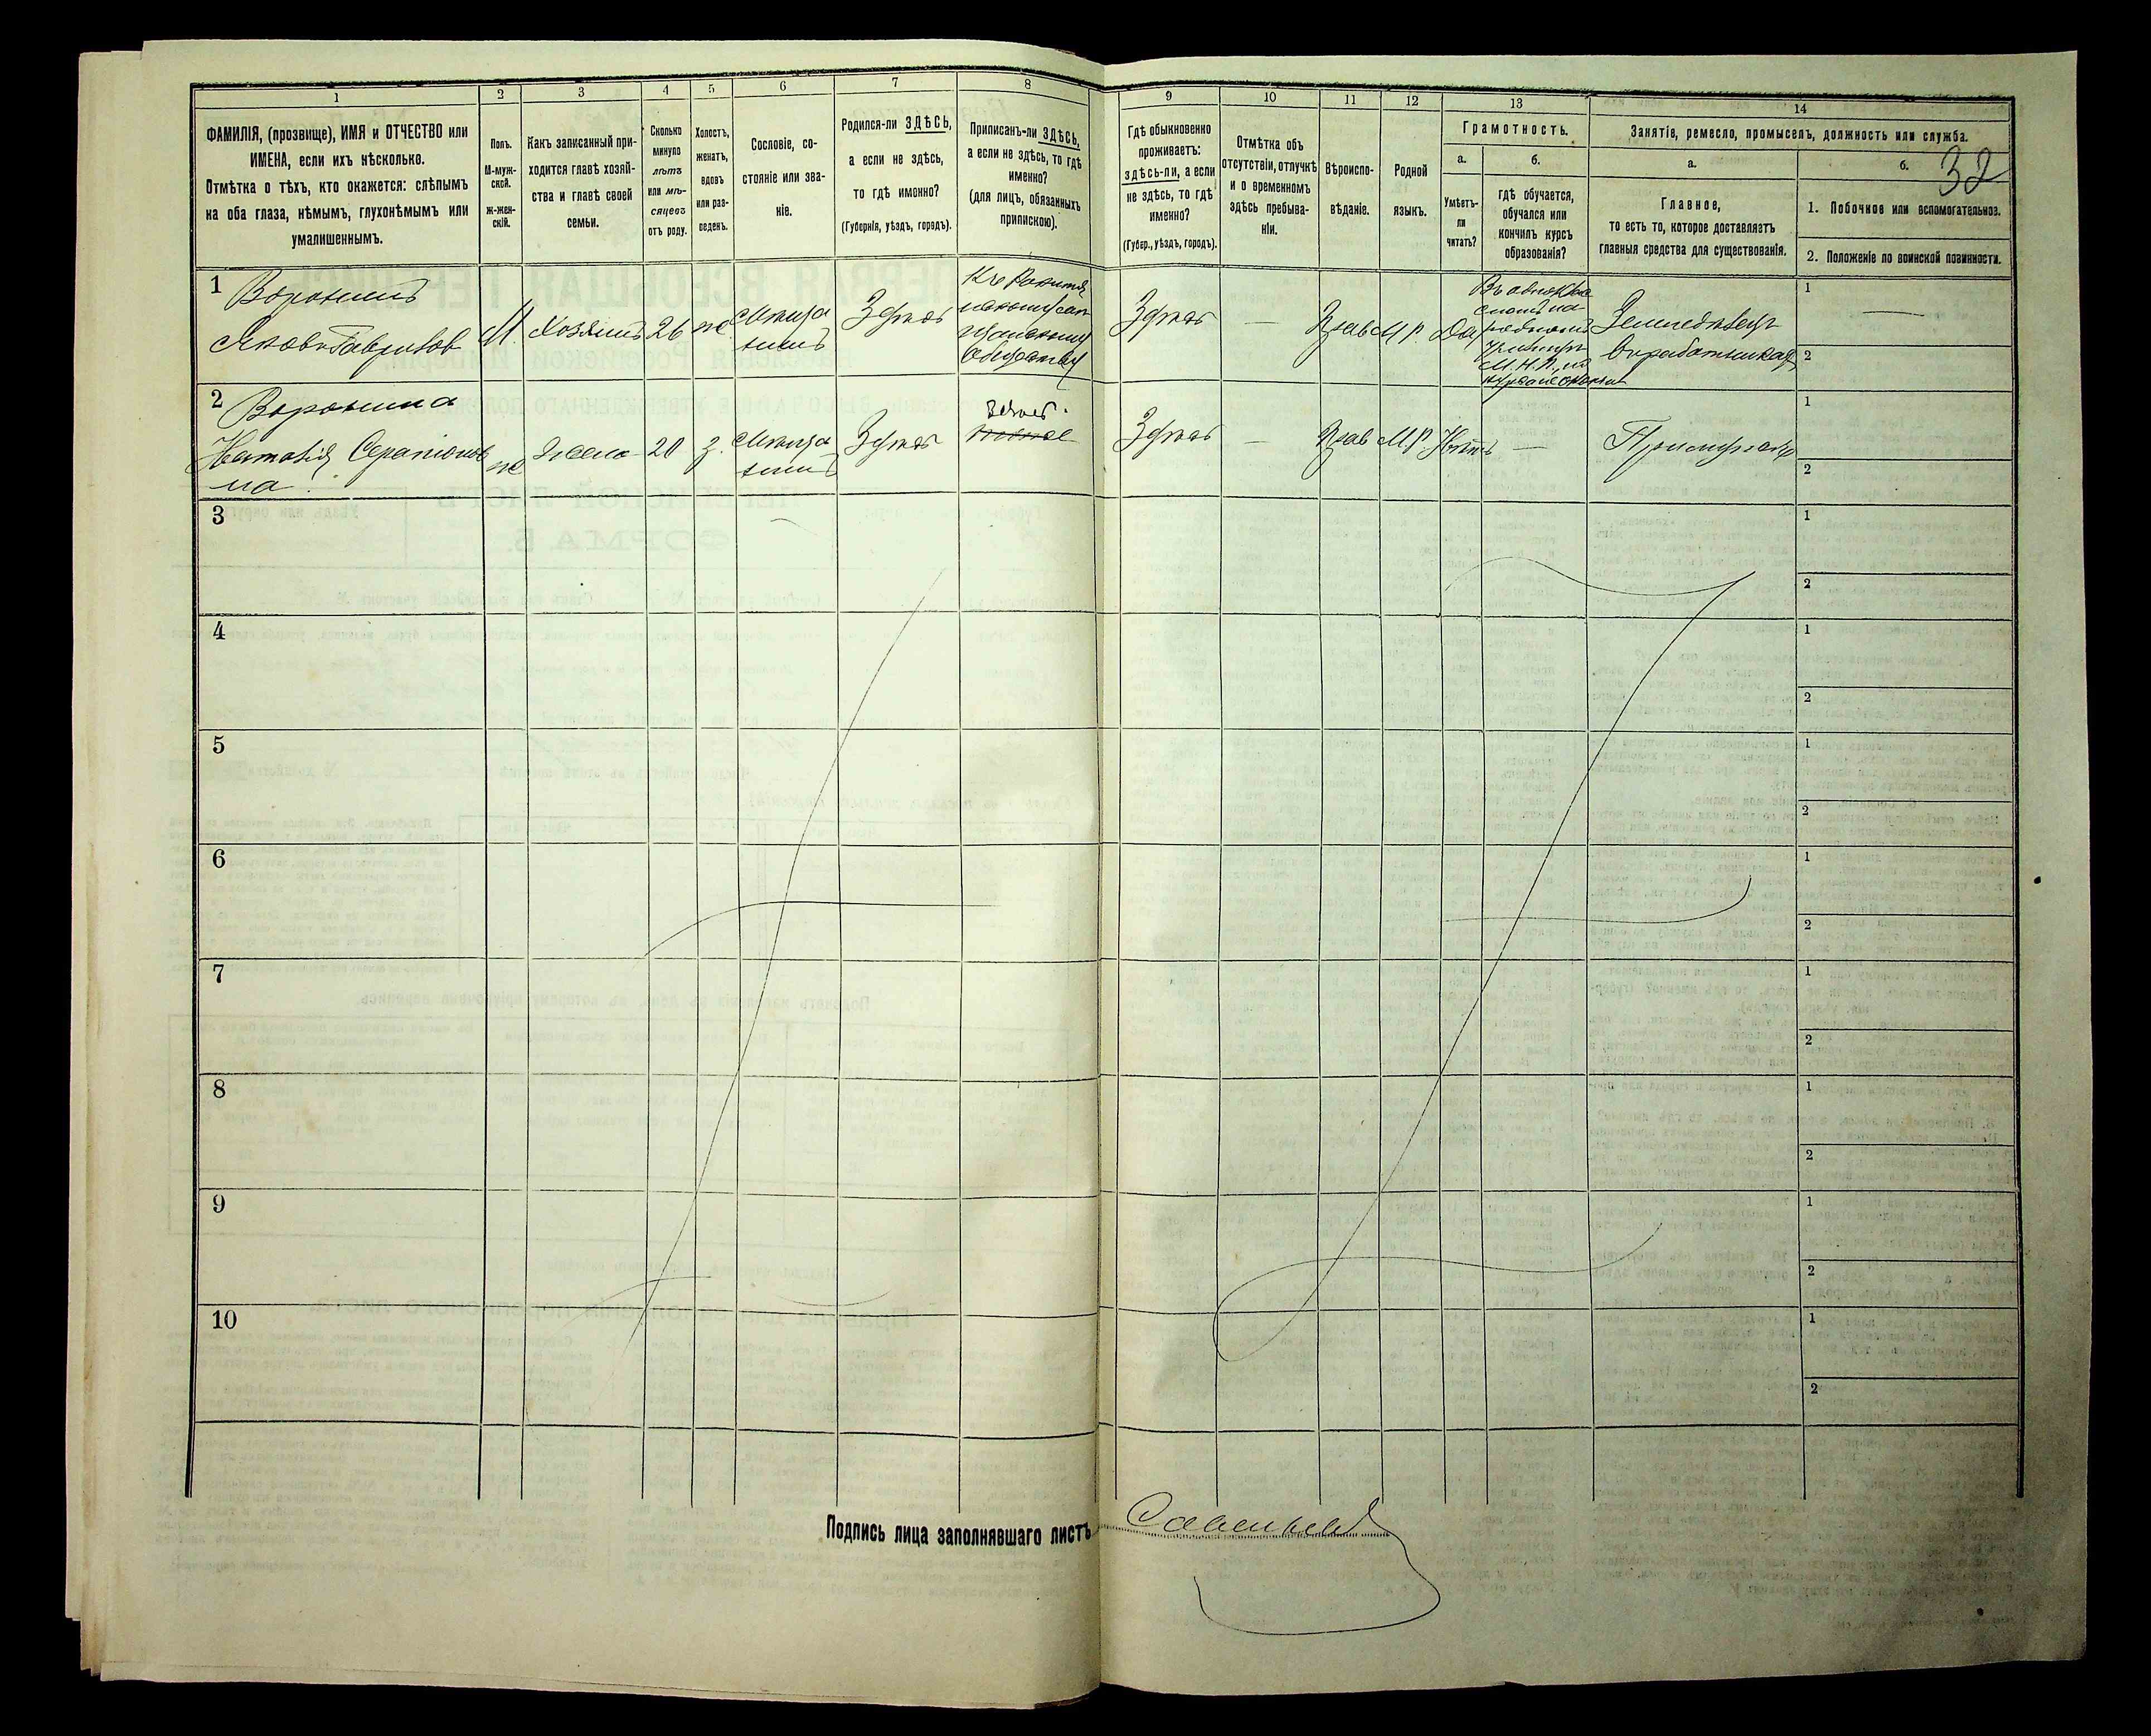 1
2
3
4
5
6
7
8
ФАМИЛІЯ, (прозвище), ИМЯ и ОТЧЕСТВО или
ИМЕНА, если ихъ нѣсколько.
Отмѣтка о тѣхъ, кто окажется: слѣпымъ
на оба глаза, нѣмымъ, глухонѣмымъ или
умалишеннымъ.
Полъ.
М-муж-
ской.
ж-жен-
скій.
Какъ записанный при-
ходится главѣ хозяй-
ства и главѣ своей
семьи.
Сколько
минуло
лѣтъ
или мѣ-
сяцевъ
отъ роду.
Холостъ,
женатъ,
вдовъ
или раз-
веденъ.
Сословіе, со-
стояніе или зва-
ніе.
Родился-ли ЗДѢСЬ,
а если не здѣсь,
то гдѣ именно?
(Губернія, уѣздъ, городъ).
Приписанъ-ли ЗДѢСЬ,
а если не здѣсь, то гдѣ
именно?
(для лицъ, обязанныхъ
припискою).
9
10
11
12
13
14
Гдѣ обыкновенно
проживаетъ:
здѣсь-ли, а если
не здѣсь, то гдѣ
именно?
(Губер., уѣздъ, городъ).
Отмѣтка объ
отсутствіи, отлучкѣ
и о временномъ
здѣсь пребыва-
ніи.
Вѣроиспо-
вѣданіе.
Родной
языкъ.
Грамотность.
а.
б.
Умѣетъ-
ли
читать?
гдѣ обучается,
обучался или
кончилъ курсъ
образованія?
Занятіе, ремесло, промыселъ, должность или служба.
а.
б.
32
Главное,
то есть то, которое доставляетъ
главныя средства для существованія.
1. Побочное или вспомогательное.
2. Положеніе по воинской повинности.
1
Воронинъ
Яковъ Гаврилов
М. Хозяинъ 26 ж
Здѣсь
Здѣсь
—
Прав
М. Р.
Да
Земледѣлец
1
—
2
2
Воронина
Наталія Серапіонов
на
ж
Жена
20
з.
Здѣсь
Здѣсь
—
Прав
М. Р.
Нѣтъ
—
При мужѣ
1
2
3
1
2
4
1
2
5
1
2
6
1
2
7
1
2
8
1
2
9
1
2
10
1
2
Подпись лица заполнявшаго листъ